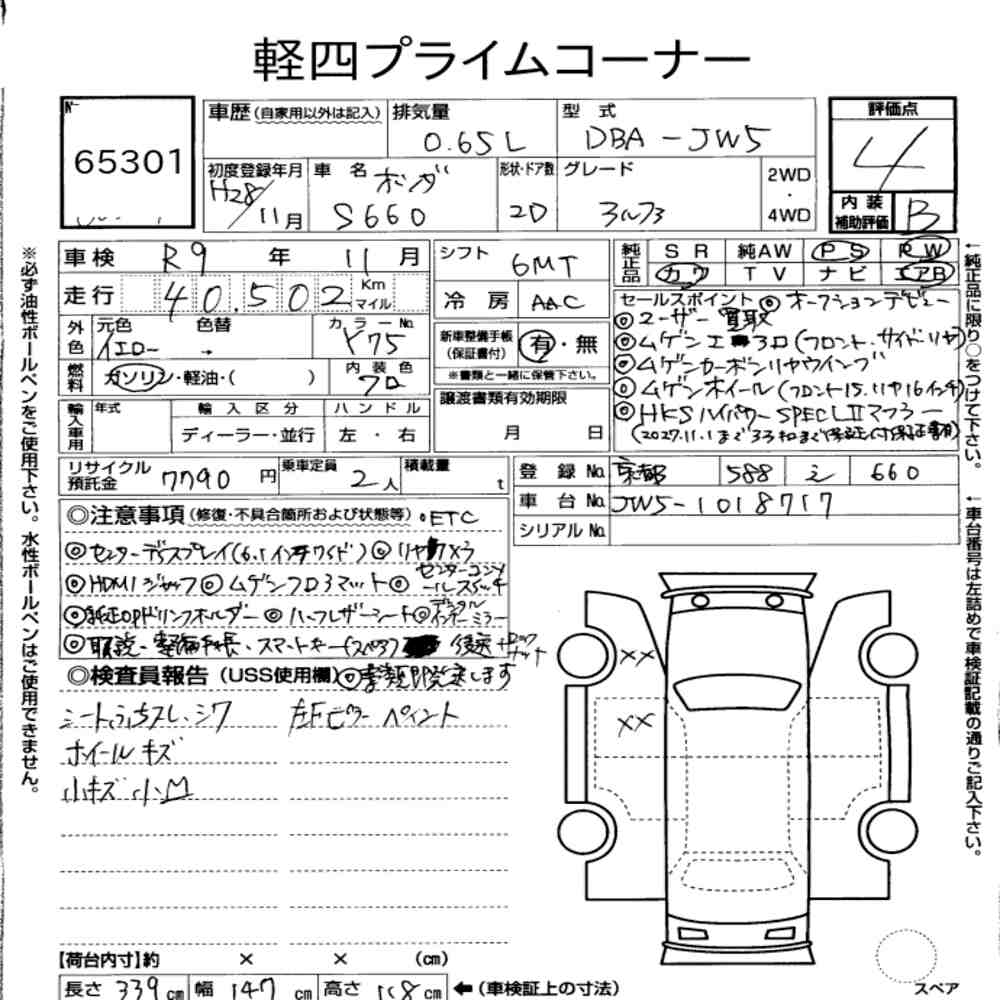 軽四プライムコーナー
№
65301
車歴 (自家用以外は記入)
排気量
0.65L
型 式
DBA-JW5
評価点
4
内装補助評価
B
初度登録年月
H28/11月
車名
ホンダ
S660
形状・ドア数
2D
グレード
アルファ
2WD
・
4WD
車検 R9 年 11 月
走行 40.502 Km マイル
シフト 6MT
冷房 AAC
純正品
SR 純AW PS PW
カワ TV ナビ エアB
外色 元色 色替 カラーNo.
イエロー → Y75
燃料 ガソリン・軽油・( )
内装色 クロ
新車整備手帳(保証書付) 有・無
※書類と一緒に保管下さい。
セールスポイント ◎オークションデビュー
◎ユーザー買取
◎ムゲンエアロ(フロント.サイド.リヤ)
◎ムゲンカーボンリヤウイング
◎ムゲンホイール(フロント15.リヤ16インチ)
◎HKSハイパワーSPECLⅡマフラー
(2027.11.1まで
輸入車用 年式 輸入区分 ハンドル
ディーラー・並行 左・右
譲渡書類有効期限
月 日
リサイクル預託金 7790 円
乗車定員 2人
積載量 t
登録No. 京都 588 シ 660
車台No. JW5-1018717
シリアルNo.
◎注意事項 (修復・不具合箇所および状態等) .ETC
◎センターディスプレイ(6.1インチワイド) ◎リヤ
◎HDMIジャック◎ムゲンフロアマット◎センターコンソールスイッチ
◎純正OPドリンクホルダー ◎ハーフレザーシート◎デジタルインナーミラー
◎取説・整備手帳・スマートキー(スペア) 後送+ロックナット
◎検査員報告 (USS使用欄)◎書類即発送します
シートふちスレ.シワ 左Fピラーペイント
ホイールキズ
小キズ小凹
XX
XX
【荷台内寸】約 × × (cm)
長さ 339 cm 幅 147 cm 高さ 118 cm ←(車検証上の寸法)
スペア
※必ず油性ボールペンをご使用下さい。水性ボールペンはご使用できません。
←純正品に限り○をつけて下さい。
←車台番号は左詰めで車検証記載の通りご記入下さい。